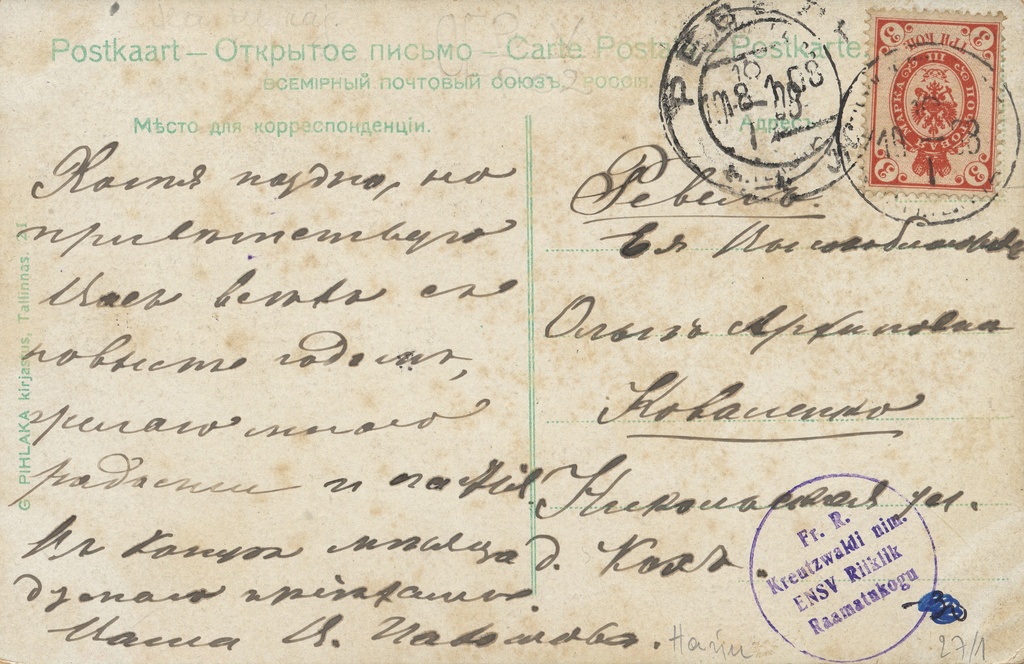 Postkaart — Открытое письмо — Carte Postale — Postkarte
ВСЕМІРНЫЙ ПОЧТОВЫЙ СОЮЗЪ РОССІЯ.
Мѣсто для корреспонденціи.
Хотя поздно, но
привѣтствую
Васъ всѣхъ съ
новымъ годомъ,
желаю много
радости и
Въ концѣ мѣсяца
думаю пріѣхать.
Ваша
© PIHLAKA kirjastus, Tallinnas. 21
Адресъ
Ревель.
Ея
Ольгѣ Архиповнѣ
Коваленко
Никольская ул.
д. Кохъ.
РЕВЕЛЬ
МАРКА ПОЧТОВАЯ
ТРИ КОП.
3
3
3
3
Fr. R.
Kreutzwaldi nim.
ENSV Riiklik
Raamatukogu
27/1